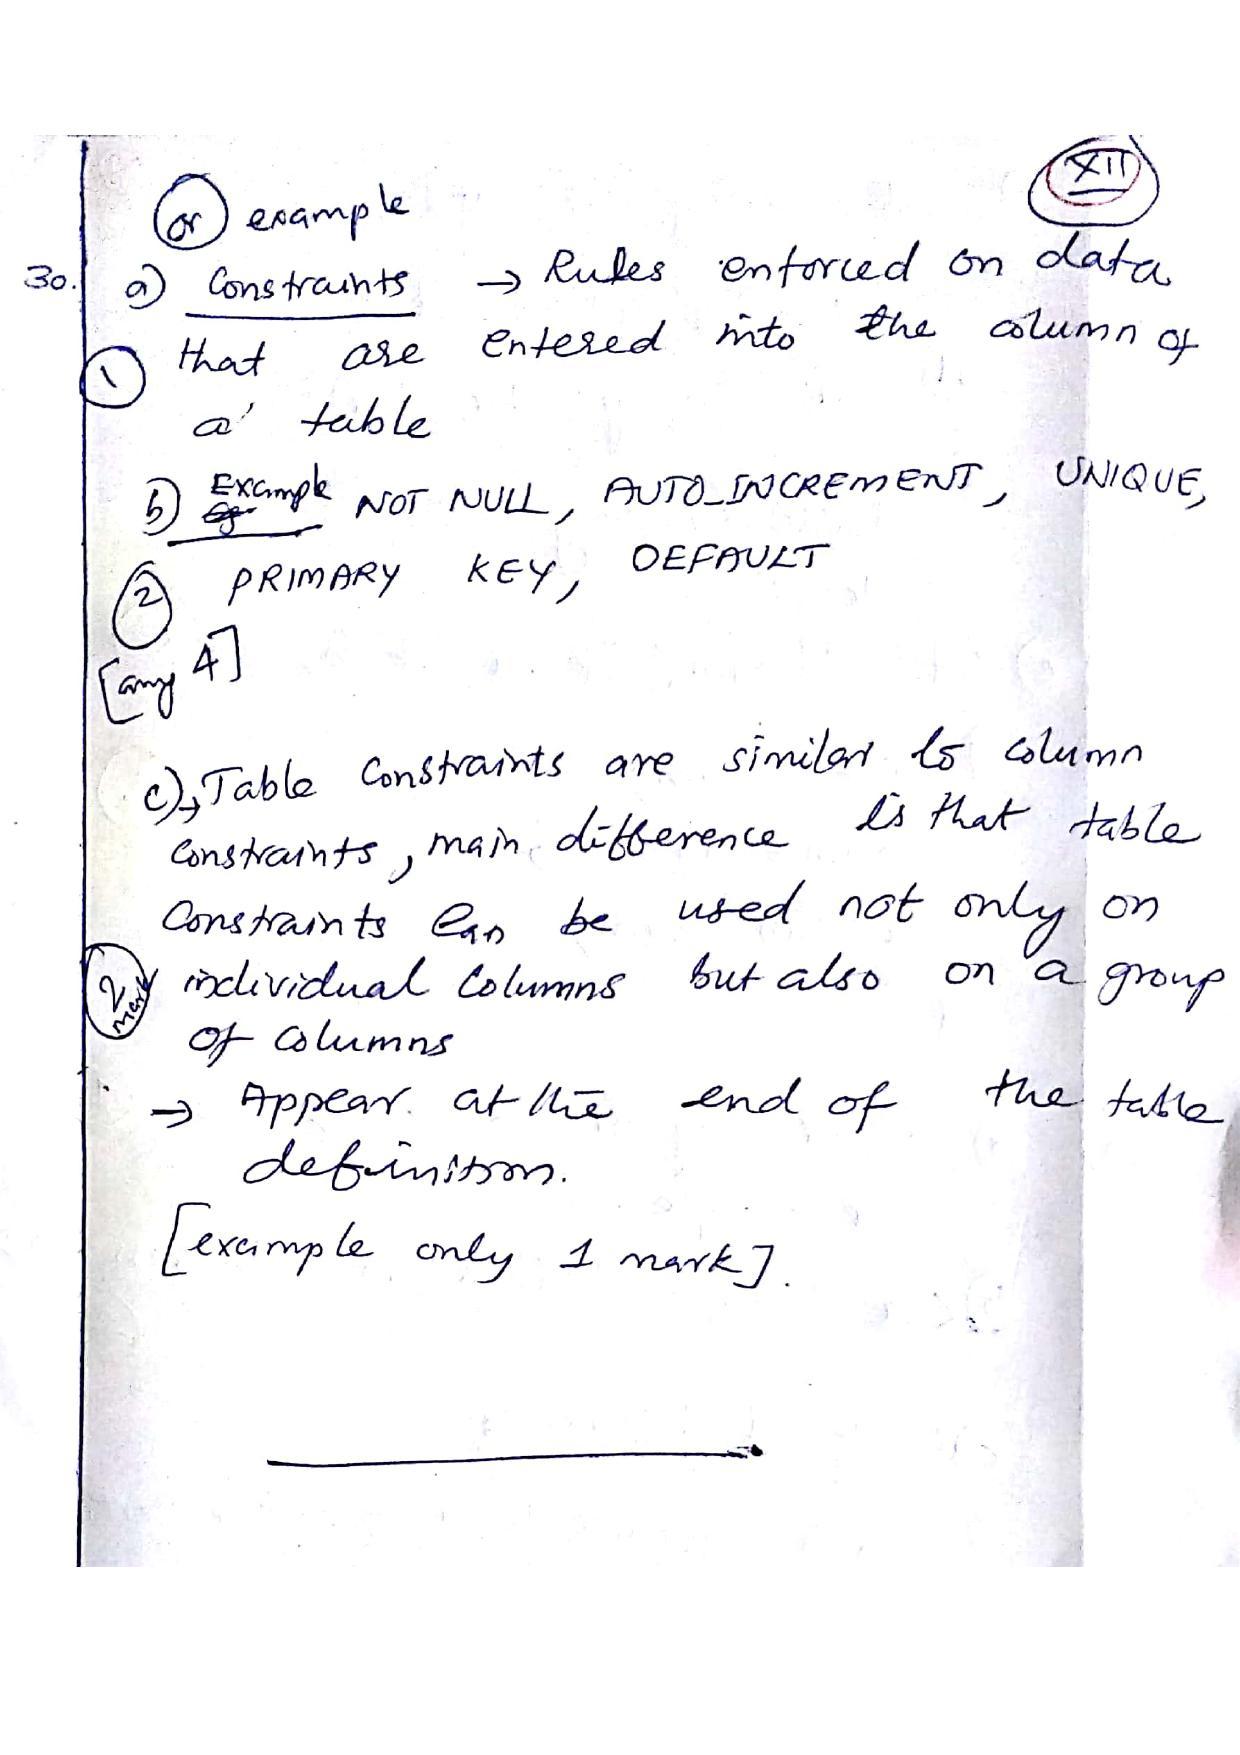 XII
or example
30. a) Constraints → Rules enforced on data
1 that are entered into the column of
a table
b) Example NOT NULL, AUTO_INCREMENT, UNIQUE,
2 PRIMARY KEY, DEFAULT
[any 4]
c)→ Table Constraints are similar to column
Constraints, main difference is that table
Constraints can be used not only on
2 mark individual Columns but also on a group
of columns
→ Appear at the end of the table
definition.
[example only 1 mark].